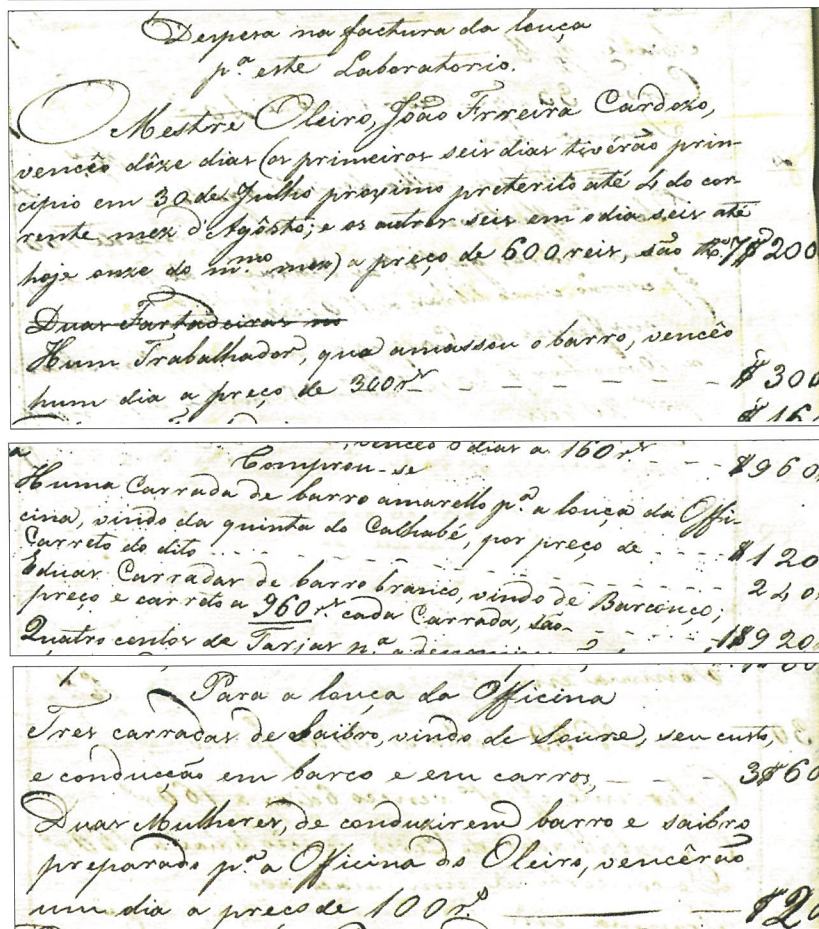 Despesa na factura da louça
p.ª este Laboratorio.
O Mestre Oleiro, João Frreira Cardozo,
vencêo dôze dias (os primeiros seis dias tivérão prin-
cipio em 30 de Julho proximo preterito até 4 do cor-
rente mez d'Agôsto; e os outros seis em o dia seis até
hoje onze do m.mo mez) a preço de 600 reis, são R.s 7$200
Duas Fartadeiras no
Hum Trabalhador, que amassou o barro, vencêo
hum dia a preço de 300 r.s - - - - - - $300
$16
vencêo 6 dias a 160 r.s - - - $960
Comprou-se
Huma Carrada de barro amarello p.ª a louça da Offi-
cina, vindo da quinta do Calhabé, por preço de - - $120
Carreto do dito - - - 240
E duas Carradas de barro branco, vindo de Barcouço;
preço e carreto a 960 r.s cada Carrada, são - - 1$920
Quatro centos de Tarjas p.ª
Para a louça da Officina
Tres carradas de Saibro, vindo de Soure, seu custo,
e conducção em barco e em carros, - - - 3$60
Duas Mulheres, de conduzirem barro e saibro
preparado p.ª a Officina do Oleiro, vencêrão
um dia a preço de 100 r.s — $20